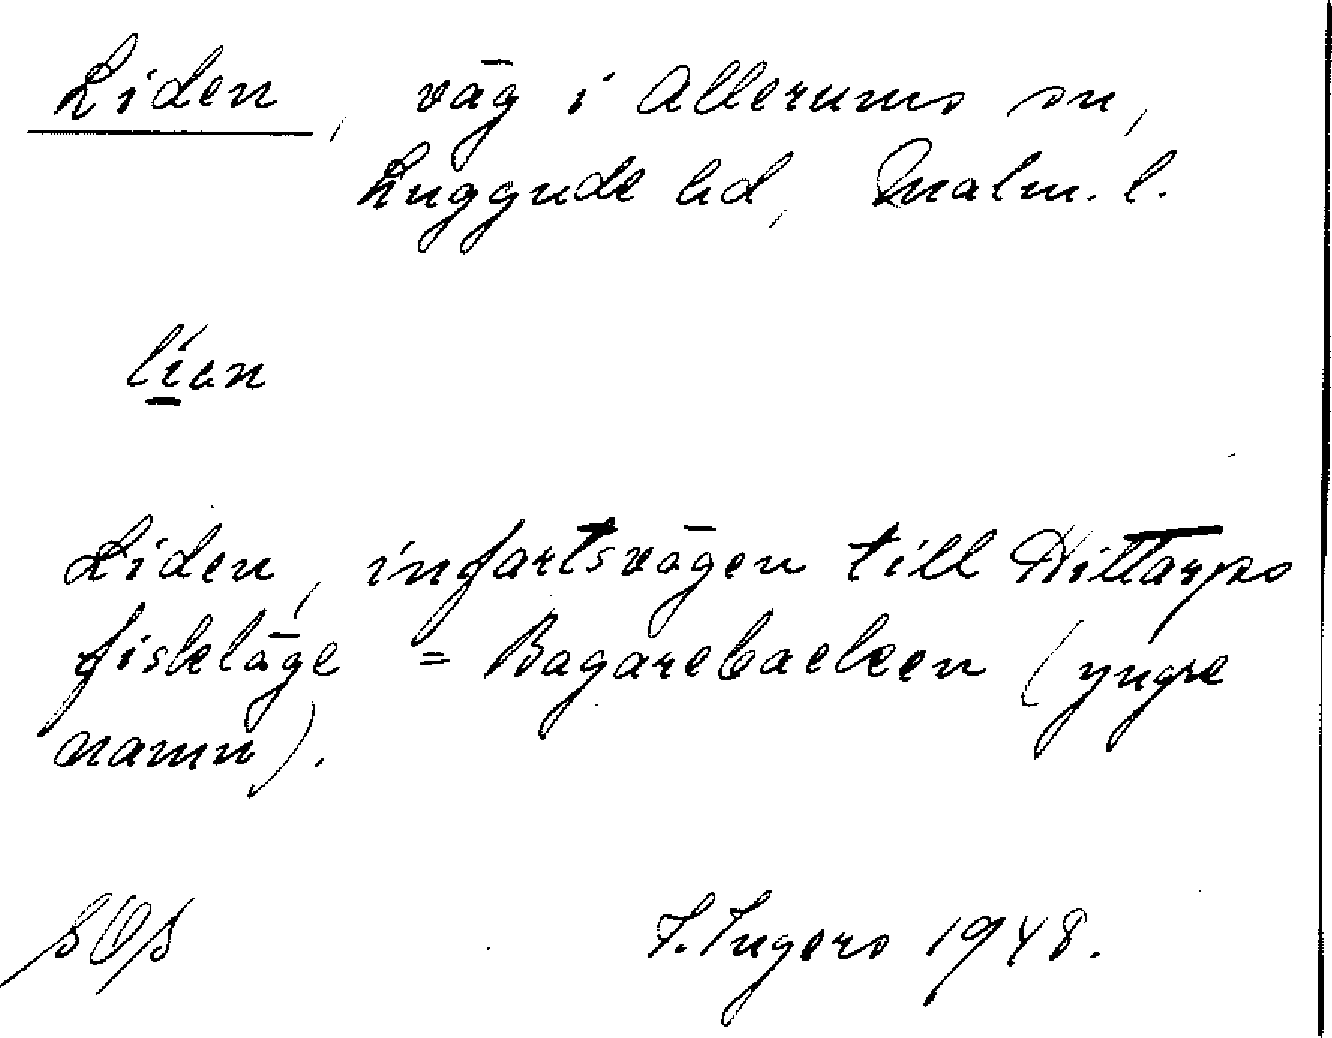 Liden, väg i Allerums sn,
Luggude hd, Malm. l.
líən
Liden, infartsvägen till Hittarps
fiskeläge = Bagarebacken (yngre
namn).
I. Ingers 1948.